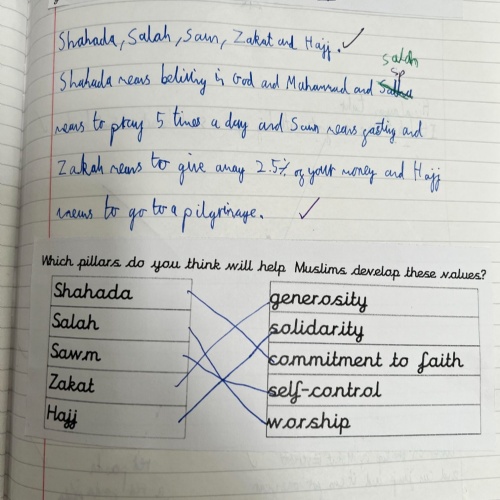 Shahada, Salah, Sawm, Zakat and Hajj.
salah
sp
Shahada means beliving in God and Mahammad and
means to pray 5 times a day and Sawm means fasting and
Zakah means to give away 2.5% of your money and Hajj
means to go to a pilgrinage.
Which pillars do you think will help Muslims develop these values?
Shahada generosity
Salah solidarity
Sawm commitment to faith
Zakat self-control
Hajj worship